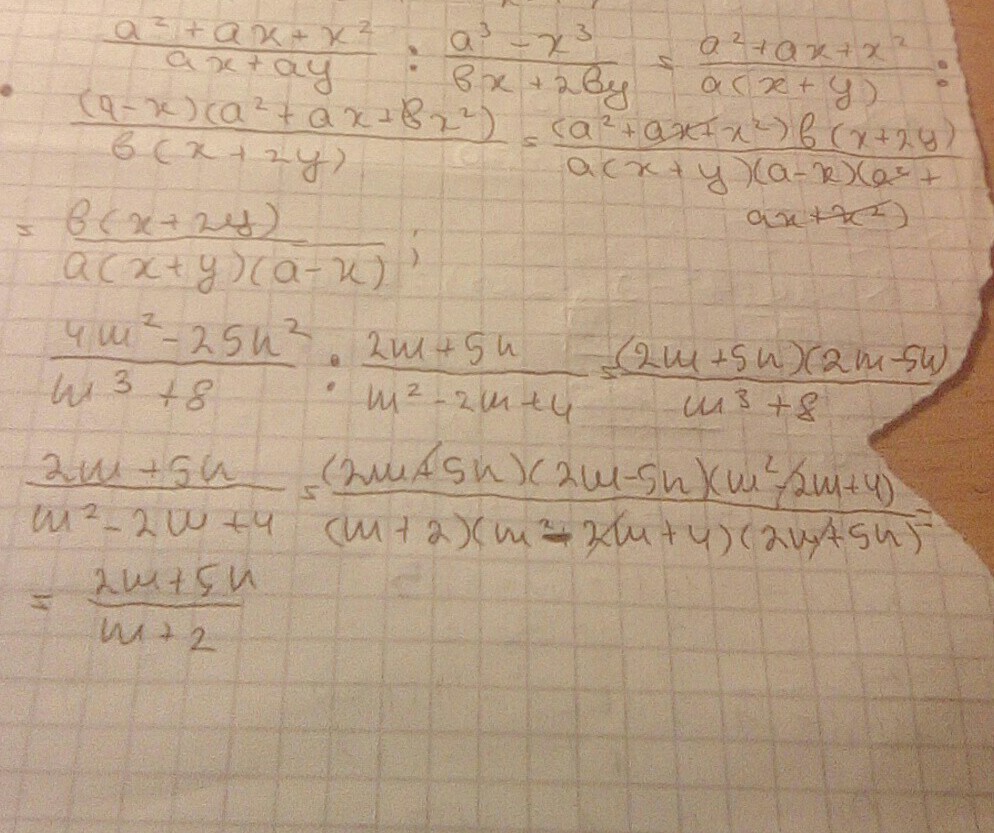 a² + ax + x² / ax + ay : a³ - x³ / вx + 2вy = a² + ax + x² / a(x + y) :
(a-x)(a² + ax + вx²) / в(x + 2y) = (a² + ax + x²) в(x + 2y) / a(x + y)(a-x)(a² + ax + x²)
= в(x + 2y) / a(x + y)(a - x) ;
4m² - 25n² / m³ + 8 : 2m + 5n / m² - 2m + 4 = (2m + 5n)(2m - 5n) / m³ + 8
2m + 5n / m² - 2m + 4 = (2m + 5n)(2m - 5n)(m² - 2m + 4) / (m + 2)(m² - 2m + 4)(2m + 5n) =
= 2m + 5n / m + 2